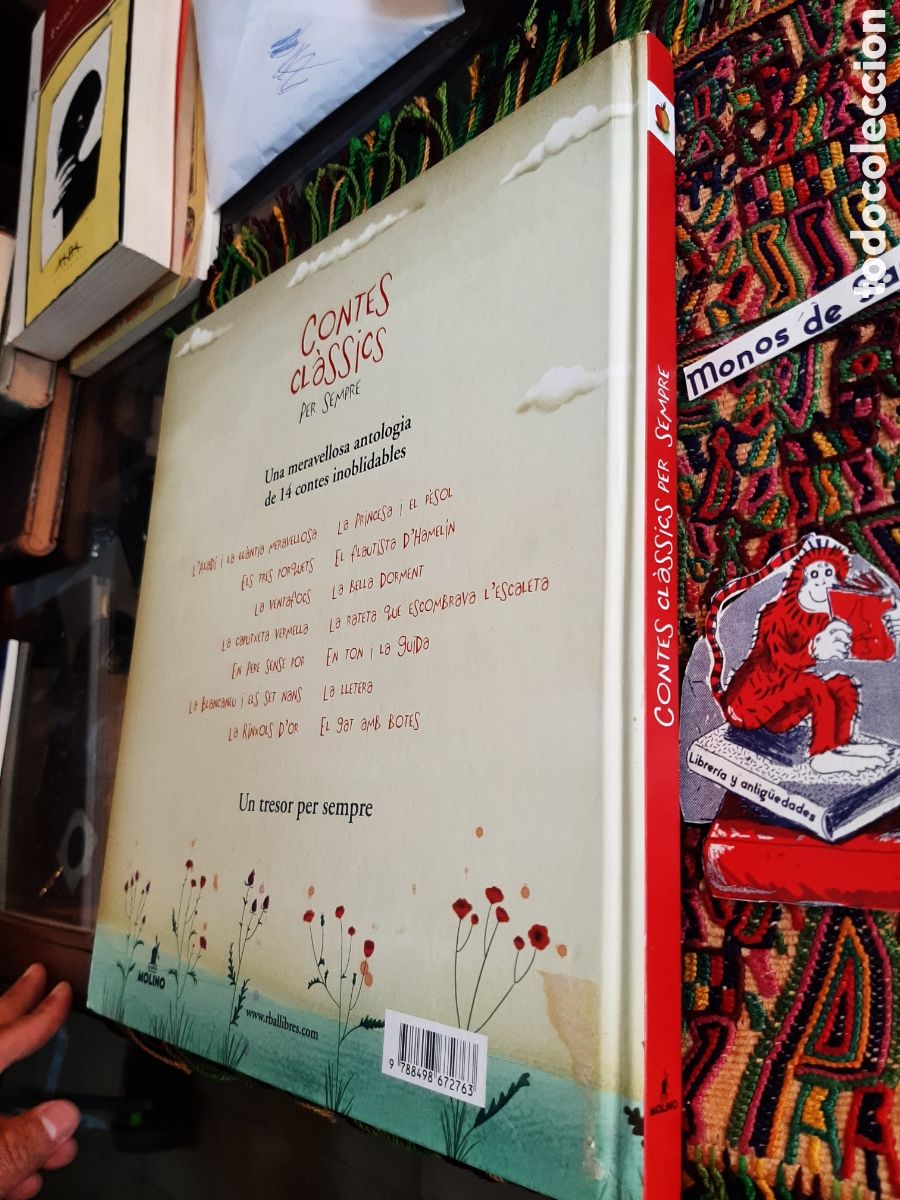 CONTES
CLÀSSICS
PER SEMPRE
Una meravellosa antologia
de 14 contes inoblidables
L'ALADÍ I LA LLÀNTIA MERAVELLOSA
ELS TRES PORQUETS
LA VENTAFOCS
LA CAPUTXETA VERMELLA
EN PERE SENSE POR
LA BLANCANEU I ELS SET NANS
LA RÍNXOLS D'OR
LA PRINCESA I EL PÈSOL
EL FLAUTISTA D'HAMELÍN
LA BELLA DORMENT
LA RATETA QUE ESCOMBRAVA L'ESCALETA
EN TON I LA GUIDA
LA LLETERA
EL GAT AMB BOTES
Un tresor per sempre
MOLINO
www.rballibres.com
9 788498 672763
CONTES CLÀSSICS PER SEMPRE
MOLINO
Monos de
Librería y antigüedades
todocoleccion